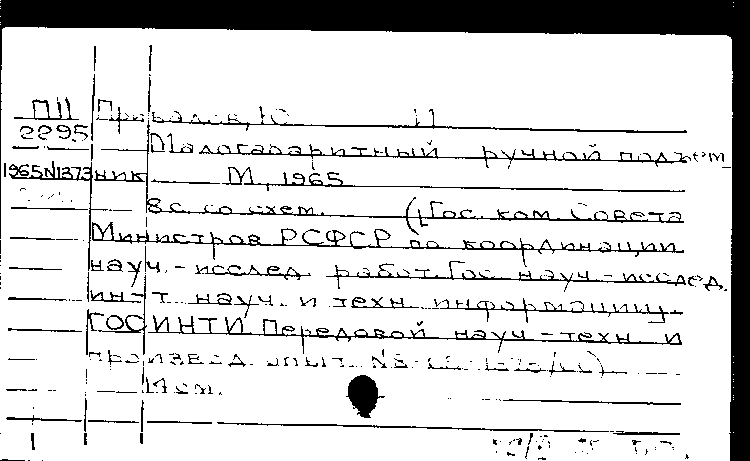 ПII Привалов, Ю И
2295
Малогабаритный ручной подъем
1965N1373 ник. М, 1965
8 с. со схем. (Гос. ком. Совета
Министров РСФСР по координации
науч.-исслед. работ. Гос. науч.-исслед.
ин-т науч. и техн. информации.
ГОСИНТИ. Передовой науч-техн. и
производ. опыт. №
14 см.